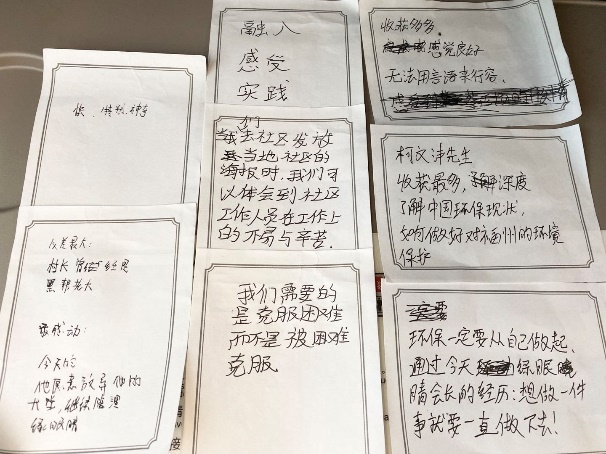 融入
感受
实践
收获多多.
感觉良好
无法用言语来行容.
们
当我去社区发放
当地社区的
海报时,我们可
以体会到社区
工作人员在工作上
的不易与辛苦.
柯文沣先生
收获最多,了解深度
了解中国环保现状,
如何做好对福州的环境
保护
村长
黑帮老大
最感动:
今天的
他愿意放弃他的
绿眼睛
我们需要的
是克服困难
而不是被困难
克服
环保一定要从自己做起.
通过今天绿眼睛
睛会长的经历:想做一件
事就要一直做下去!
接